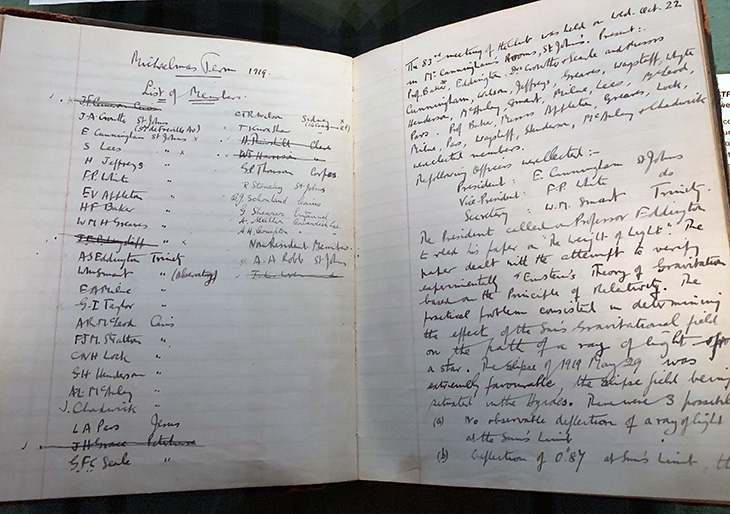 Michaelmas Term 1919.
List of Members.
J A Crowther St Johns
E Cunningham St Johns x
S Lees " x
H Jeffreys "
F.P. White "
E V Appleton "
H F Baker "
W M H Greaves "
A S Eddington Trinity
W M Smart " (Observatory)
E A Milne "
G. I Taylor "
A R McLeod Caius
F J M Stratton "
C N H Lock "
S H Henderson "
A L McAulay "
J. Chadwick "
L A Pars Jesus
J H Grace Peterhouse
G F C Searle "
Sidney x
G P Thomson Corpus
R Stoneley St Johns
B F J Schonland Caius
G Shearer
A. Müller
A. H. Compton
Non Resident Members
x A. A Robb St Johns
The 83rd meeting of the Club was held on Wed. Oct. 22
in Mr Cunningham's Rooms, St John's. Present:-
Prof. Baker, Eddington, Drs Crowther & Searle and Messrs
Cunningham, Wilson, Jeffreys, Greaves, Wagstaff, White
Henderson, McAulay, Smart, Milne, Lees, McLeod,
Pars. Prof Baker, Messrs Appleton, Greaves, Lock,
Milne, Pars, Wagstaff, Henderson, McAulay & Chadwick
were elected members.
The following Officers were elected:-
President: E. Cunningham St Johns
Vice-President: F.P. White do
Secretary: W.M. Smart Trinity.
The President called on Professor Eddington
to read his paper on "The Weight of Light". The
paper dealt with the attempt to verify
experimentally "Einstein's Theory of Gravitation
based on the Principle of Relativity. The
practical problem consisted in determining
the effect of the Sun's Gravitational field
on the path of a ray of light from
a star. The Eclipse of 1919 May 29 was
extremely favourable, the Eclipse field being
situated in the Hyades. There were 3 possible
(a) No observable deflection of a ray of light
at the Sun's Limb
(b) Deflection of 0".87 at Sun's Limb, th